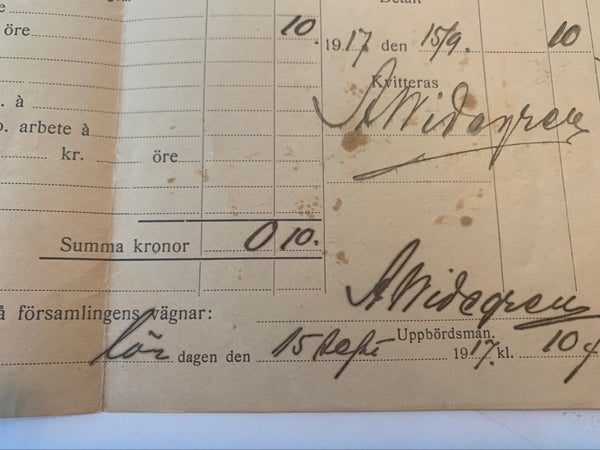 öre 10. 1917 den 15/9. 10
Kvitteras
. à
o. arbete à
A Widegren
kr. öre
Summa kronor 0 10.
A Widegren
å församlingens vägnar:
Uppbördsman.
lör dagen den 15 sept 1917. kl. 10